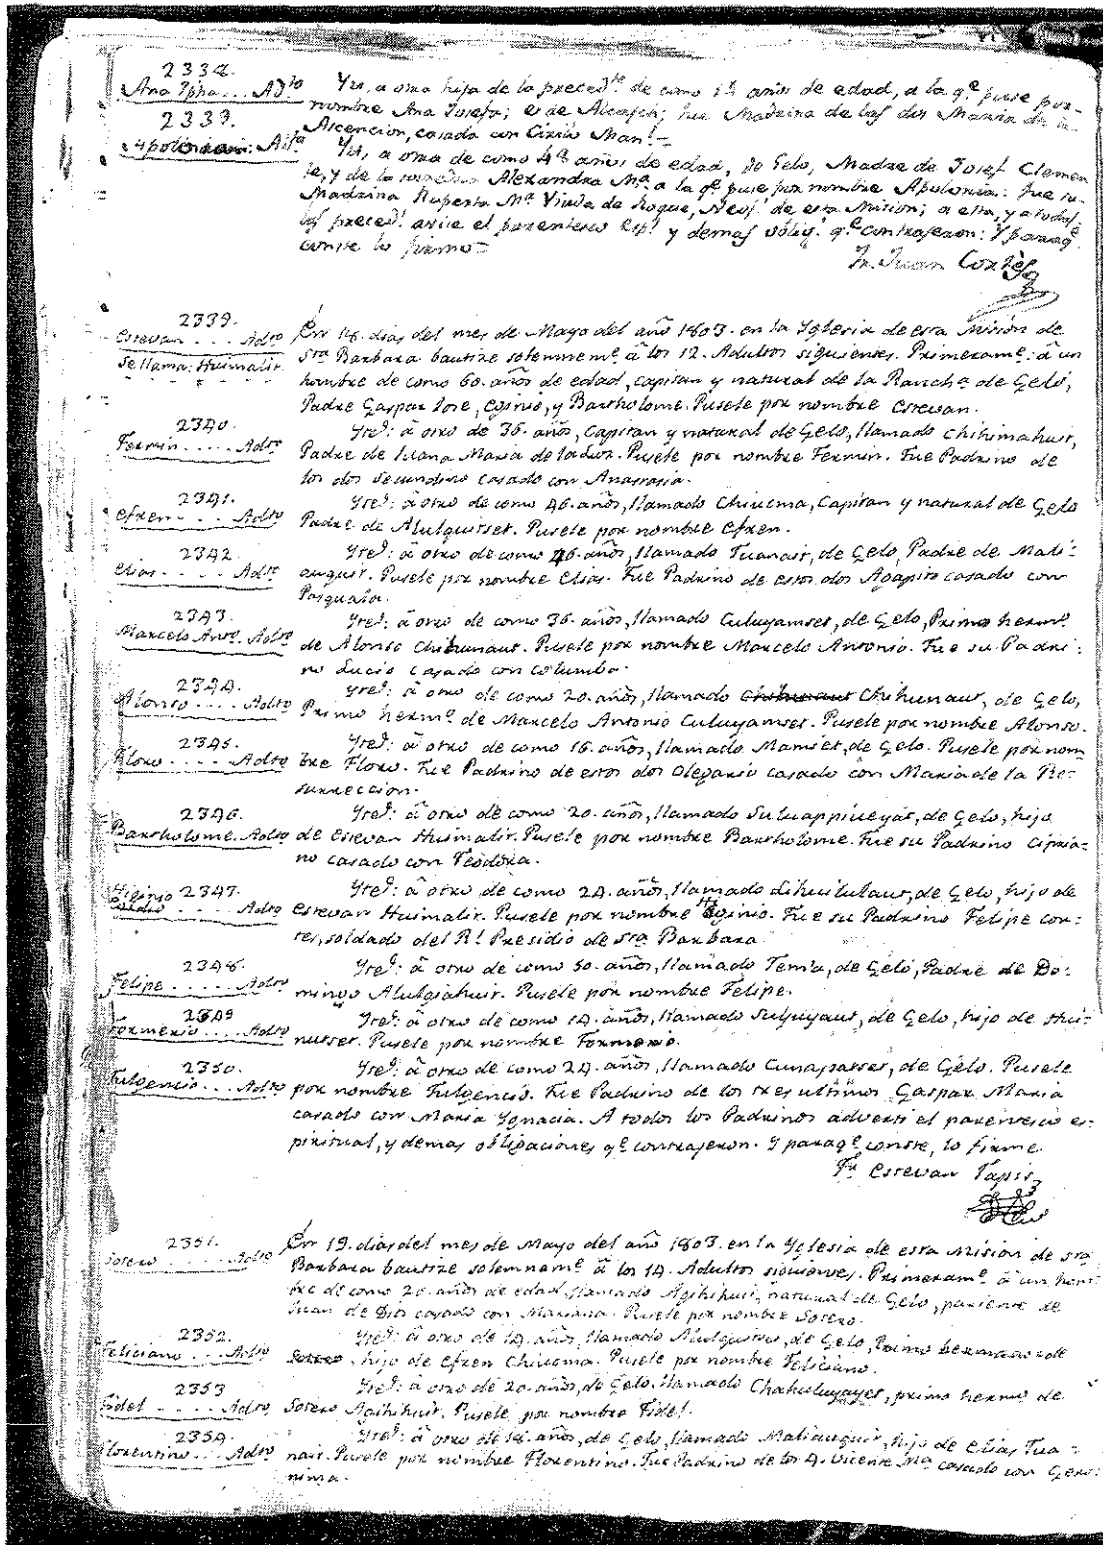 2338.
Ana Jpha... Adta Yt, a otra hija de la precedte de como 13 años de edad, a la qe puse por
nombre Ana Josefa; es de Alcasch; fue Madrina de las dos Maria de la
2339.
Ascencion, casada con Cirilo Manl.
Apolonia: Adta Yt, a otra de como 48 años de edad, de Gelo, Madre de Josef Clemen
te, y de la Alexandra Ma a la qe puse por nombre Apolonia: fue su
Madrina Ruperta Ma Viuda de Roque, Neof. de esta Mision; a esta, y a todas
las preced. avise el parentesco esp. y demas oblig. qe contrageron: Y paraqe
conste lo firmo=
Fr. Juan Cortès
2339.
Estevan .... Adto
Se llama: Huimalit.
En 18. dias del mes de Mayo del año 1803. en la Yglesia de esta Mision de
Sta Barbara bautize solemneme â los 12. Adultos siguientes. Primerame: â un
hombre de como 60. años de edad, capitan y natural de la Rancha de Geló,
Padre Gaspar Jose, Eginio, y Bartholome. Pusele por nombre Estevan.
2340.
Fermin ..... Adto
Yted: â otro de 36. años, Capitan y natural de Gelo, llamado Chihimahuit,
Padre de Juana Maria de la Cruz. Pusele por nombre Fermin. Fue Padrino de
los dos Secundino casado con Anastasia.
2341.
Efren .... Adto
Yted: â otro de como 46. años, llamado Chiucma, Capitan y natural de Gelo
Padre de Alulquitset. Pusele por nombre Efren.
2342
Elias ..... Adto
Yted: â otro de como 46. años, llamado Tuanait, de Gelo, Padre de Mati=
auguit. Pusele por nombre Elias. Fue Padrino de estos dos Agapito casado con
Pasquala.
2343.
Marcelo Anto. Adto
Yted: â otro de como 36. años, llamado Culuyamset, de Gelo, Primo hermo
de Alonso Chihunaut. Pusele por nombre Marcelo Antonio. Fue su Padri=
no Lucio casado con Columba.
2344.
Alonso .... Adto
Yted: â otro de como 20. años, llamado Chihunaut Chihunaut, de Gelo,
Primo hermo de Marcelo Antonio Culuyamset. Pusele por nombre Alonso.
2345.
Floro ..... Adto
Yted: â otro de como 16. años, llamado Mamset, de Gelo. Pusele por nom
bre Floro. Fue Padrino de estos dos Olegario casado con Maria de la Re=
surreccion.
2346.
Bartholome. Adto
Yted: â otro de como 20. años, llamado Suluappiueyat, de Gelo, hijo
de Estevan Huimalit. Pusele por nombre Bartholome. Fue su Padrino Cipria=
no casado con Teodora.
Higinio 2347.
..... Adto
Yted: â otro de como 24. años, llamado Lihuilulaut, de Gelo, hijo de
Estevan Huimalit. Pusele por nombre Higinio. Fue su Padrino Felipe Cor=
tes, soldado del Rl Presidio de Sta Barbara
2348.
Felipe ..... Adto
Yted: â otro de como 50. años, llamado Temia, de Geló, Padre de Do=
mingo Alulgiahuit. Pusele por nombre Felipe.
2349
Formerio ... Adto
Yted: â otro de como 14. años, llamado Suluyaut, de Gelo, hijo de Hui=
nutset. Pusele por nombre Formerio.
2350.
Fulgencio... Adto
Yted: â otro de como 24. años, llamado Cunapatset, de Gelo. Pusele
por nombre Fulgencio. Fue Padrino de los tres ultimos Gaspar Maria
casado con Maria Ygnacia. A todos los Padrinos adverti el parentesco es=
piritual, y demas obligaciones qe contrageron. Y paraqe conste, lo firme.
Fr. Estevan Tapis
2351.
Sotero .... Adto
En 19. dias del mes de Mayo del año 1803. en la Yglesia de esta Mision de Sta
Barbara bautize solemneme â los 14. Adultos siguientes. Primerame â un hom=
bre de como 20. años de edad, llamado Agihihuit, natural de Gelo, pariente de
Juan de Dios casado con Mariana. Pusele por nombre Sotero.
2352.
Feliciano ... Adto
Yted: â otro de 14. años, llamado Alulquitset, de Gelo, Primo hermano de
Sotero, hijo de Efren Chiucma. Pusele por nombre Feliciano.
2353
Fidel .... Adto
Yted: â otro de 20. años, de Gelo, llamado Chahuluyayet, primo hermo de
Sotero Agihihuit. Pusele por nombre Fidel.
2354.
Florentino... Adto
Yted: â otro de 14. años, de Gelo, llamado Matiauguit, hijo de Elias Tua=
nait. Pusele por nombre Florentino. Fue Padrino de los 4. Vicente Ma casado con Gero=
nima.